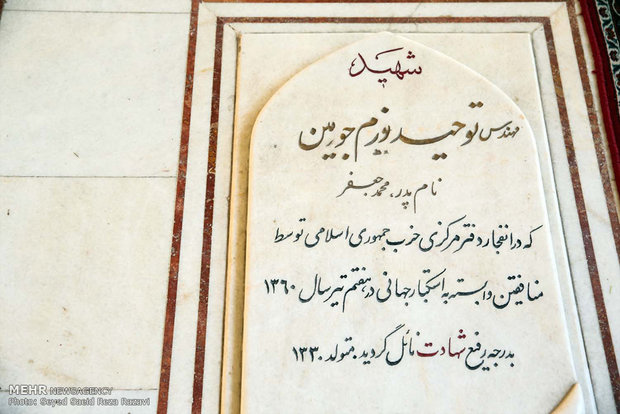 شهید
مهندس توحید رزم جومین
نام پدر، محمد جعفر
که در انفجار دفتر مرکزی حزب جمهوری اسلامی توسط
منافقین وابسته به استکبار جهانی در هفتم تیر سال ۱۳۶۰
بدرجه رفیع شهادت نائل گردید. متولد ۱۳۳۰
MEHR NEWSAGENCY
Photo: Seyed Saeid Reza Razavi